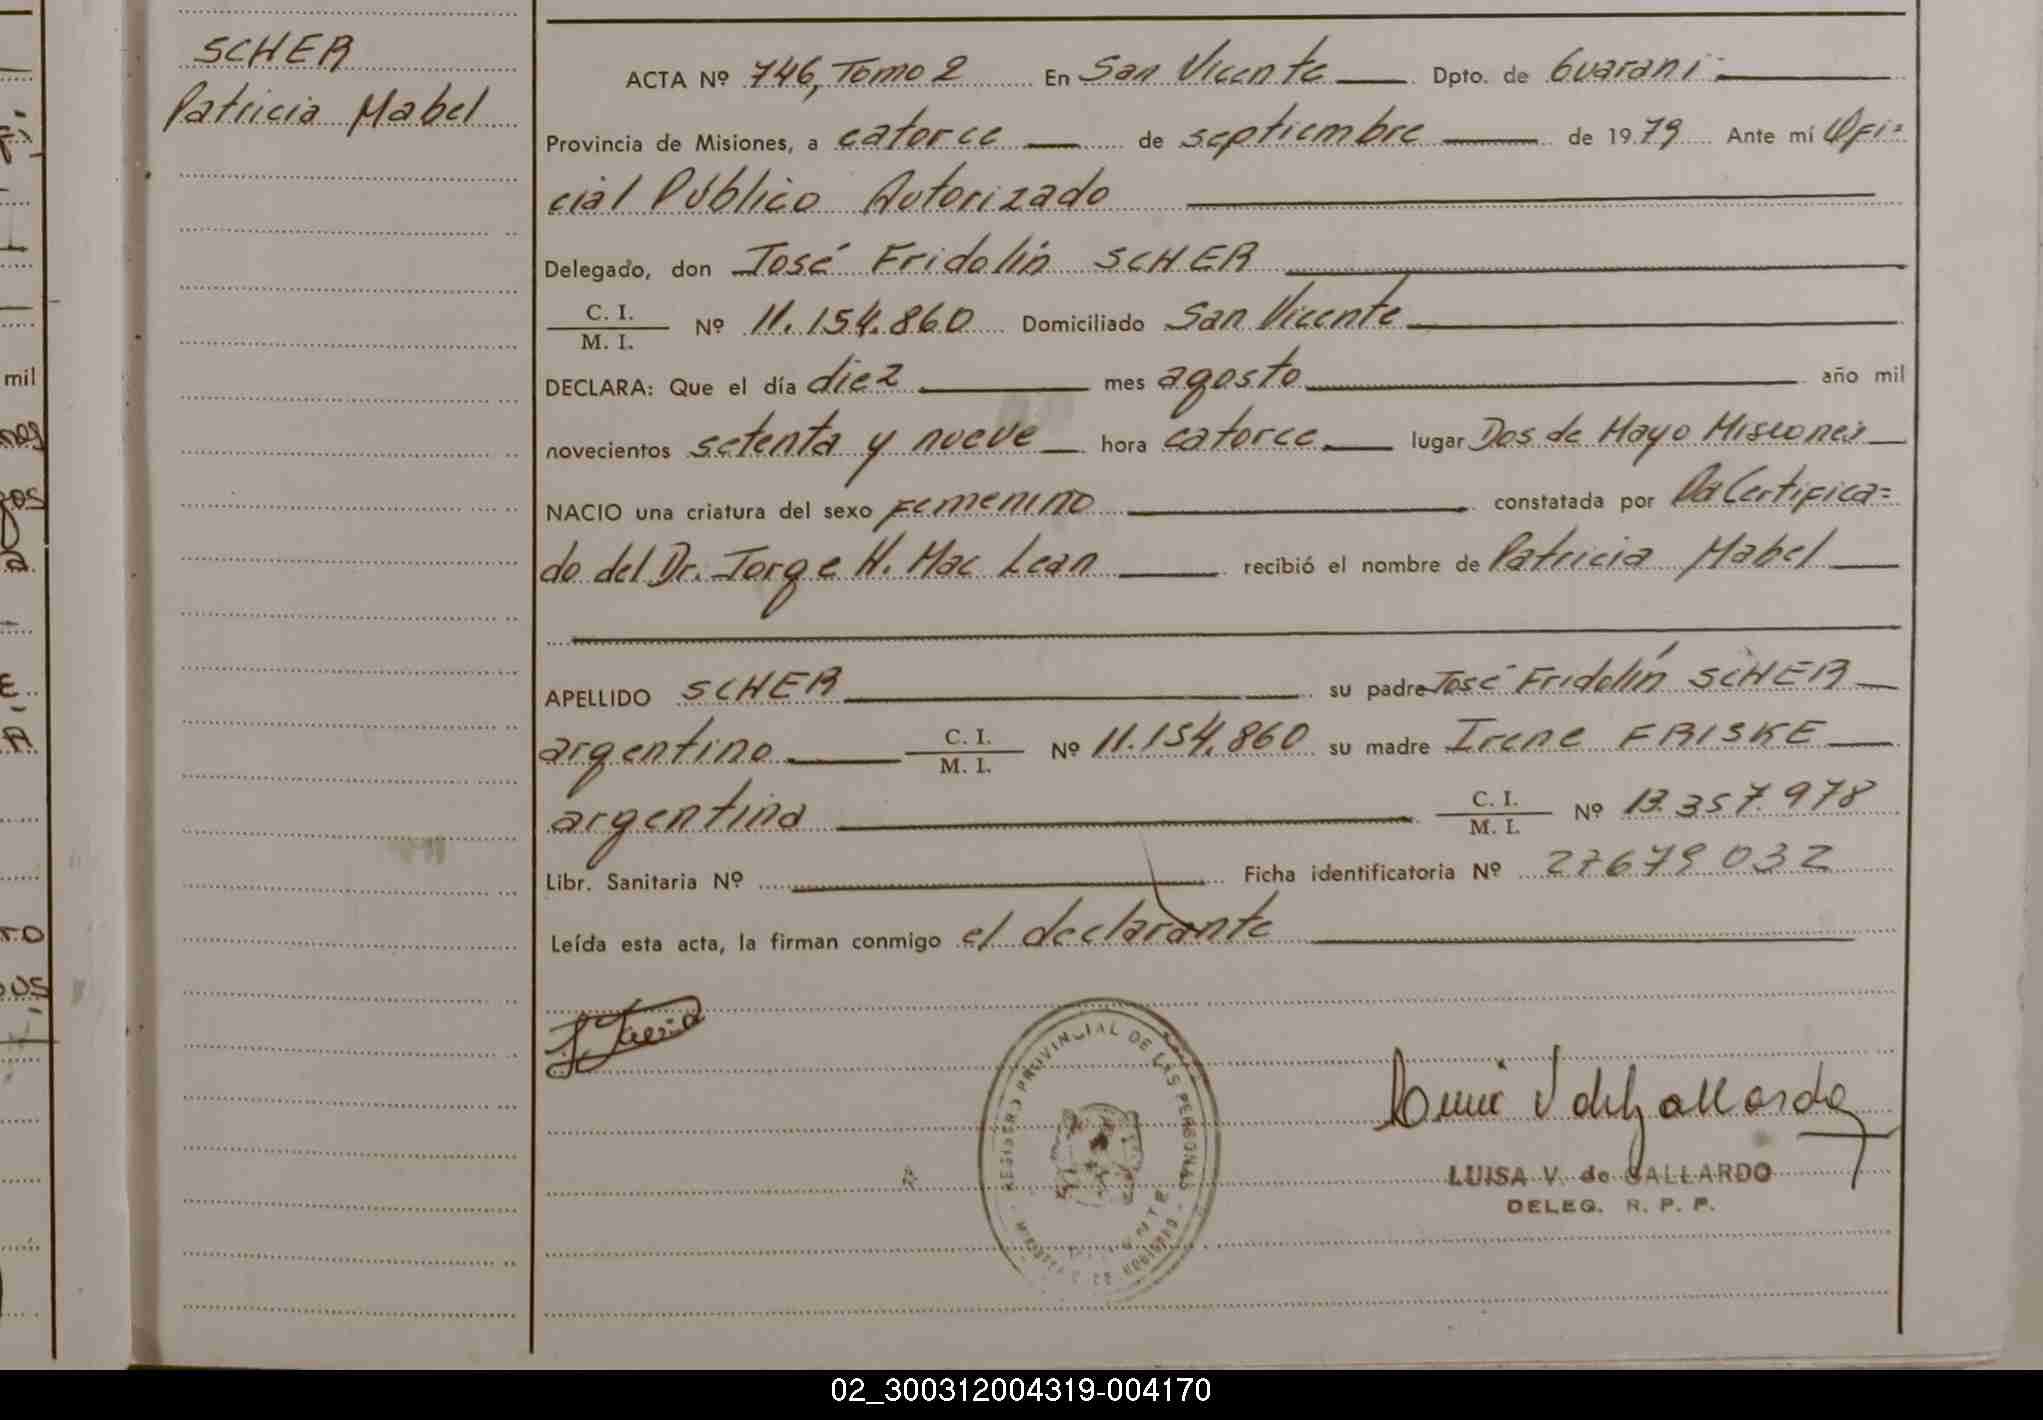 SCHER
Patricia Mabel
ACTA Nº 746, Tomo 2 En San Vicente Dpto. de Guaraní
Provincia de Misiones, a catorce de septiembre de 1979 Ante mí Ofi=
cial Público Autorizado
Delegado, don José Fridolín SCHER
C. I.
M. I.
Nº 11.154.860 Domiciliado San Vicente
DECLARA: Que el día diez mes agosto año mil
novecientos setenta y nueve hora catorce lugar Dos de Mayo Misiones
NACIO una criatura del sexo Femenino constatada por Certifica=
do del Dr. Jorge H. Mac Lean recibió el nombre de Patricia Mabel
APELLIDO SCHER su padre José Fridolín SCHER
argentino C. I.
M. I.
Nº 11.154.860 su madre Irene FRISKE
argentina C. I.
M. I.
Nº 13.357.978
Libr. Sanitaria Nº Ficha identificatoria Nº 27679032
Leída esta acta, la firman conmigo el declarante
REGISTRO PROVINCIAL DE LAS PERSONAS
LUISA V. de GALLARDO
DELEG. R. P. P.
mil
02_300312004319-004170